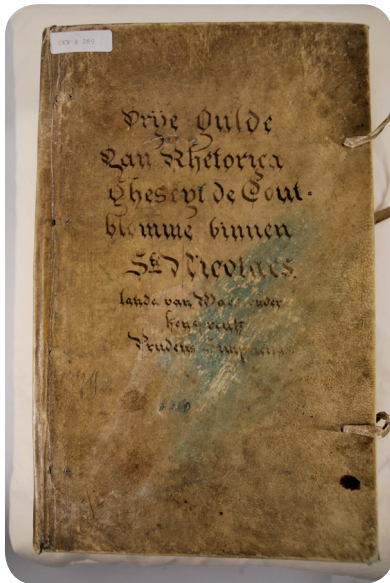 Vrije Gulde
Van Rhetorica
Gheseyt de Gout-
blomme binnen
St Nicolaes.
lande van Waes onder
Prudens